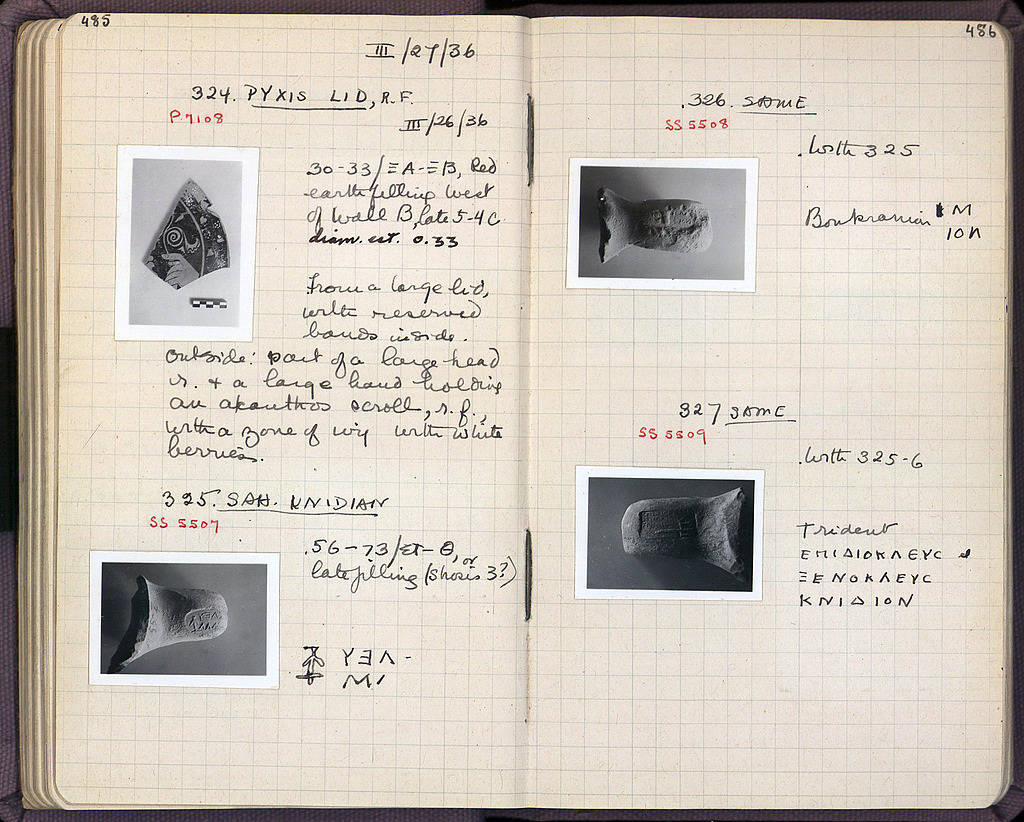 485
III/27/36
324. PYXIS LID, R.F.
P 7108
III/26/36
30-33/ΞΑ-ΞΒ, Red
earth filling west
of Wall B, late 5-4 C.
diam. est. 0.33
From a large lid,
with reserved
bands inside.
Outside: part of a large head
r. & a large hand holding
an akanthos scroll, r.f.,
with a zone of ivy with white
berries.
325. SAH. KNIDIAN
SS 5507
.56-73/ΣΤ-Θ, or
late filling (Shosis 3?)
ΥΕΛ-
ΜΙ
486
.326. SAME
SS 5508
.With 325
Boukranion Μ
ΙΟΝ
327 SAME
SS 5509
.With 325-6
Trident
ΕΠΙΔΙΟΚΛΕΥC
ΞΕΝΟΚΛΕΥC
ΚΝΙΔΙΟΝ